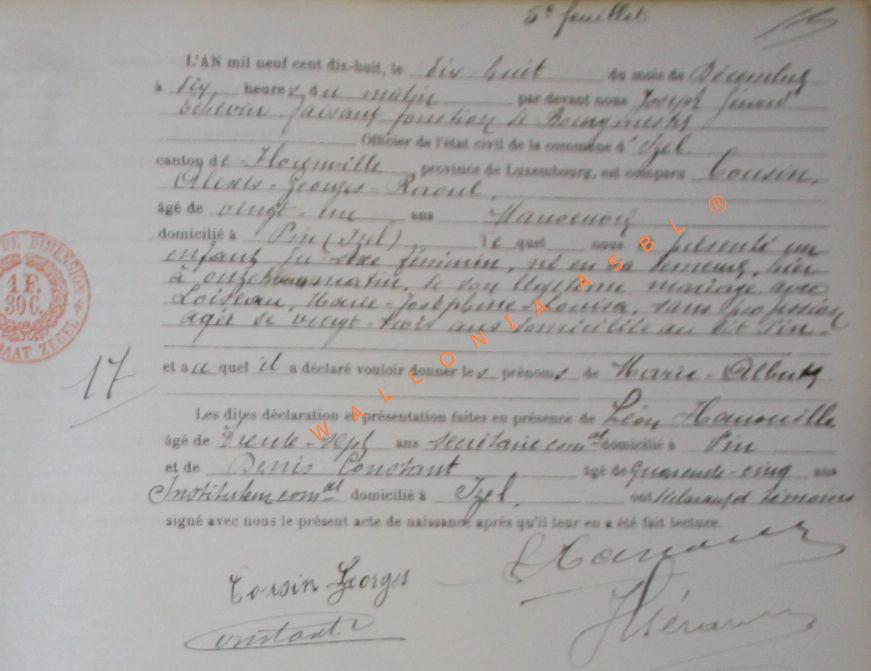 5e feuillet
L'AN mil neuf cent dix-huit, le dix-huit du mois de Décembre
à dix heures du matin par devant nous Joseph
échevin faisant fonction de Bourgmestre
Officier de l'état civil de la commune d'Izel
canton de Florenville province de Luxembourg, est comparu Cousin,
Alexis-Georges-Raoul,
âgé de vingt-un ans Manoeuvre
domicilié à Pin (Izel) lequel nous a présenté un
enfant du sexe féminin, né en sa demeure, hier
à onze heures matin, de son légitime mariage avec
Loiseau, Marie-Joséphine-Louisa, sans profession
âgée de vingt-trois ans domiciliée au dit Pin.
et auquel il a déclaré vouloir donner les prénoms de Marie-Alberte
17
Les dites déclaration et présentation faites en présence de Léon
âgé de Trente-sept ans secrétaire comal domicilié à Pin
et de Denis Constant âgé de quarante-cinq ans
Instituteur comal domicilié à Izel, ont déclarant et témoins
signé avec nous le présent acte de naissance après qu'il leur en a été fait lecture.
Cousin Georges
WALLONIA ASBL ®
DE DIMENSION
1 F.
30C.
MAAT. ZEGEL